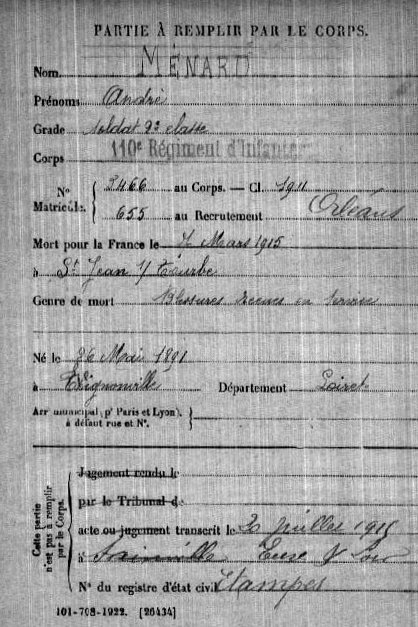 PARTIE À REMPLIR PAR LE CORPS.
Nom MÉNARD
Prénoms André
Grade soldat 2e classe
Corps 110e Régiment d'Infanterie
N° Matricule. { 2466 au Corps. — Cl. 1911
655 au Recrutement Orléans
Mort pour la France le 7 Mars 1915
à St Jean s/ Tourbe
Genre de mort Blessures reçues en service
Né le 26 Mai 1891
à Thignonville Département Loiret
Arr municipal (pr Paris et Lyon), à défaut rue et N°. }
Cette partie n'est pas à remplir par le Corps. {
Jugement rendu le
par le Tribunal de
acte ou jugement transcrit le Juillet 1915
à Sainville Eure & Loir
N° du registre d'état civil Étampes
101-708-1922. [26434]